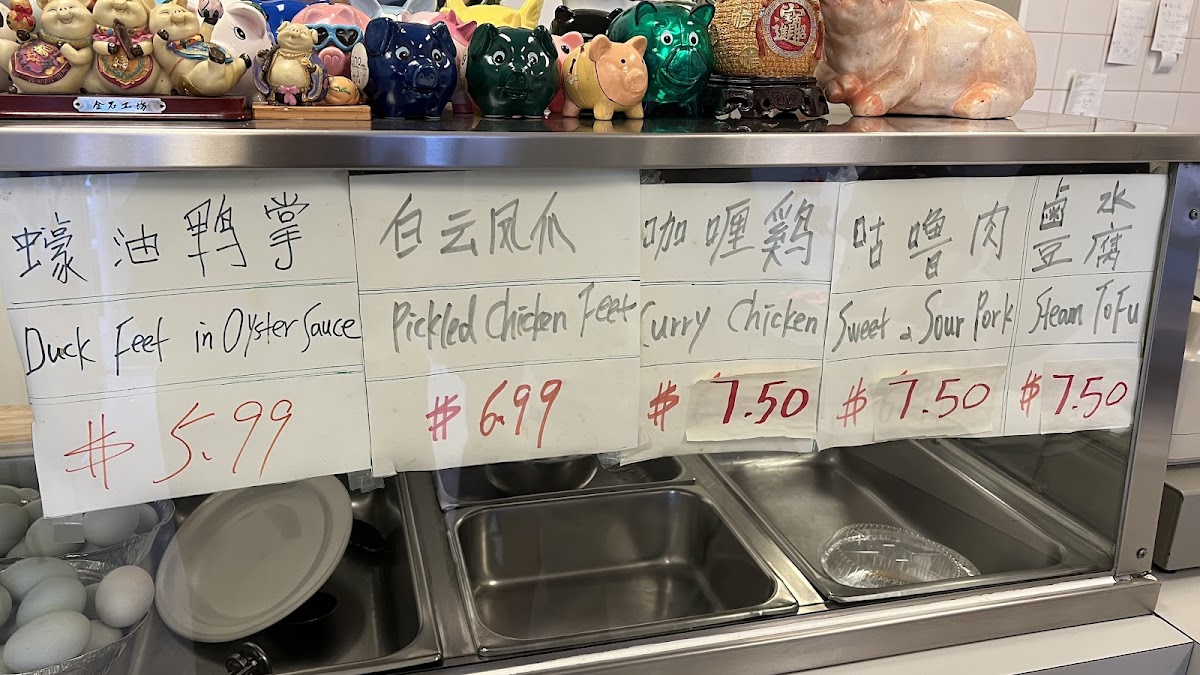 招財進寶
蠔油鸭掌
Duck Feet in Oyster Sauce
$ 5.99
白云凤爪
Pickled Chicken Feet
$ 6.99
咖喱鷄
Curry Chicken
$ 7.50
咕噜肉
Sweet & Sour Pork
$ 7.50
鹵水
豆腐
Steam ToFu
$ 7.50